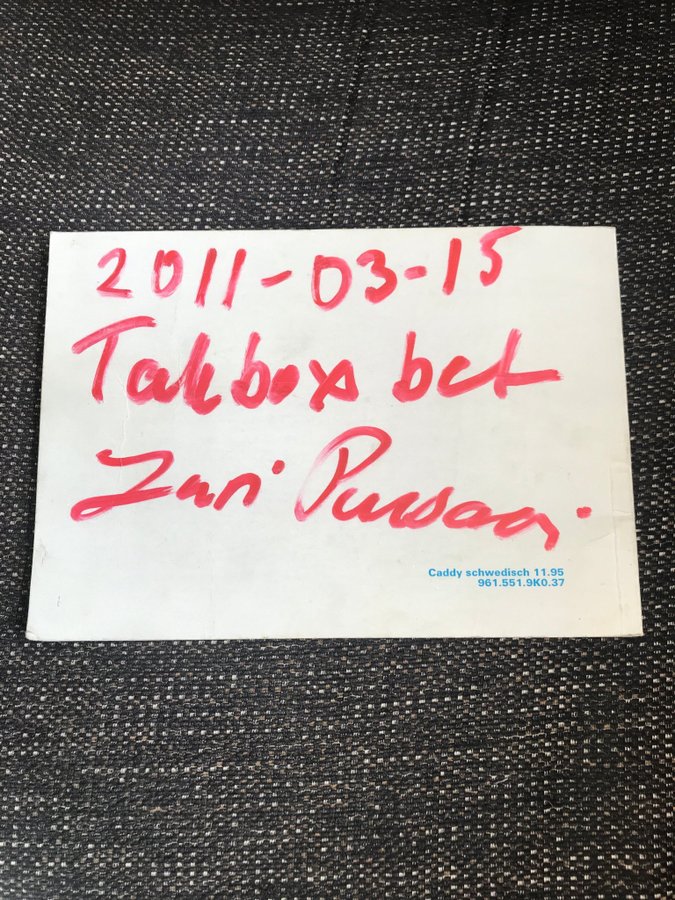 2011-03-15
Takbox bet
Caddy schwedisch 11.95
961.551.9K0.37